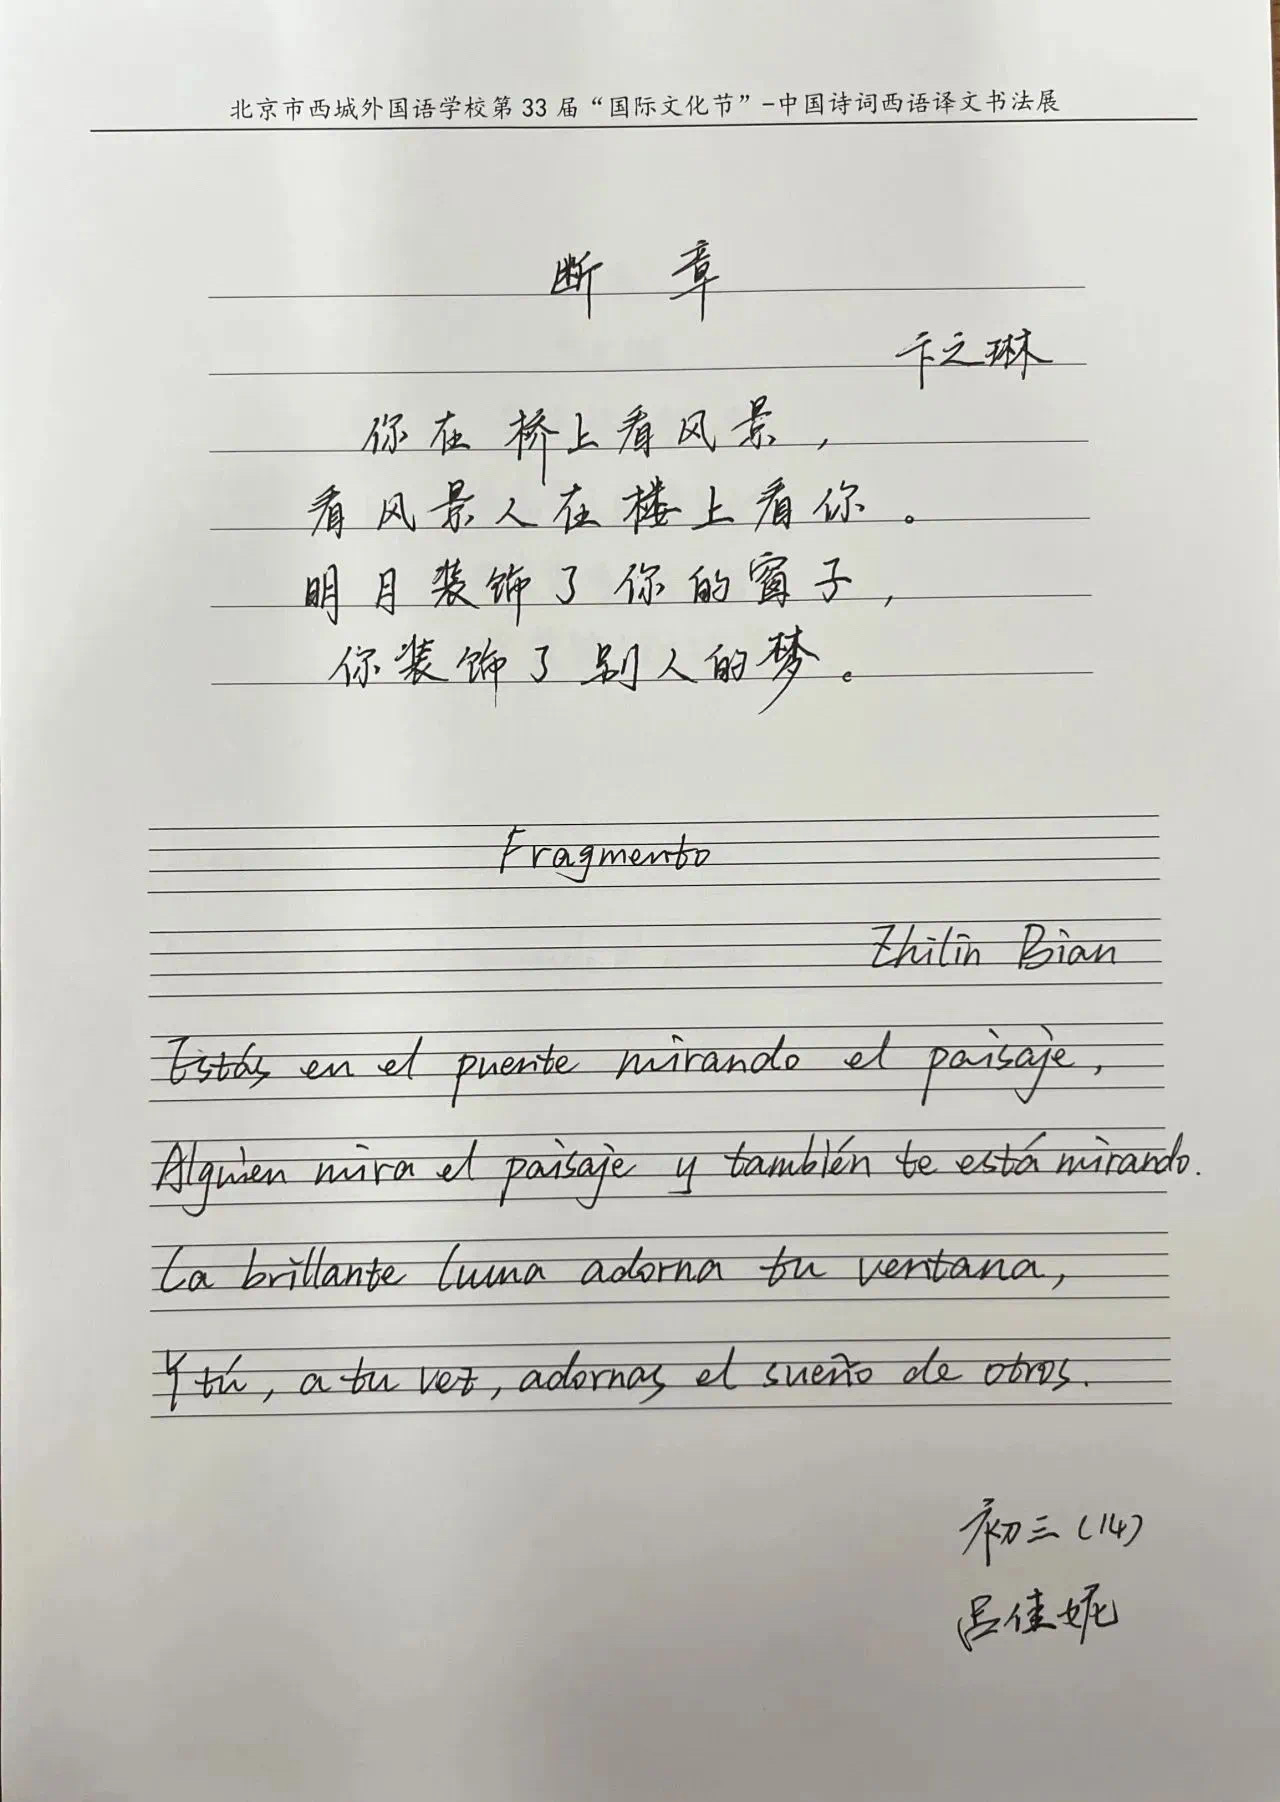 北京市西城外国语学校第 33 届“国际文化节”-中国诗词西语译文书法展
断 章
卞之琳
你在桥上看风景，
看风景人在楼上看你。
明月装饰了你的窗子，
你装饰了别人的梦。
Fragmento
Zhilin Bian
Estás en el puente mirando el paisaje,
Alguien mira el paisaje y también te está mirando.
La brillante luna adorna tu ventana,
Y tú, a tu vez, adornas el sueño de otros.
初三(14)
吕佳妮